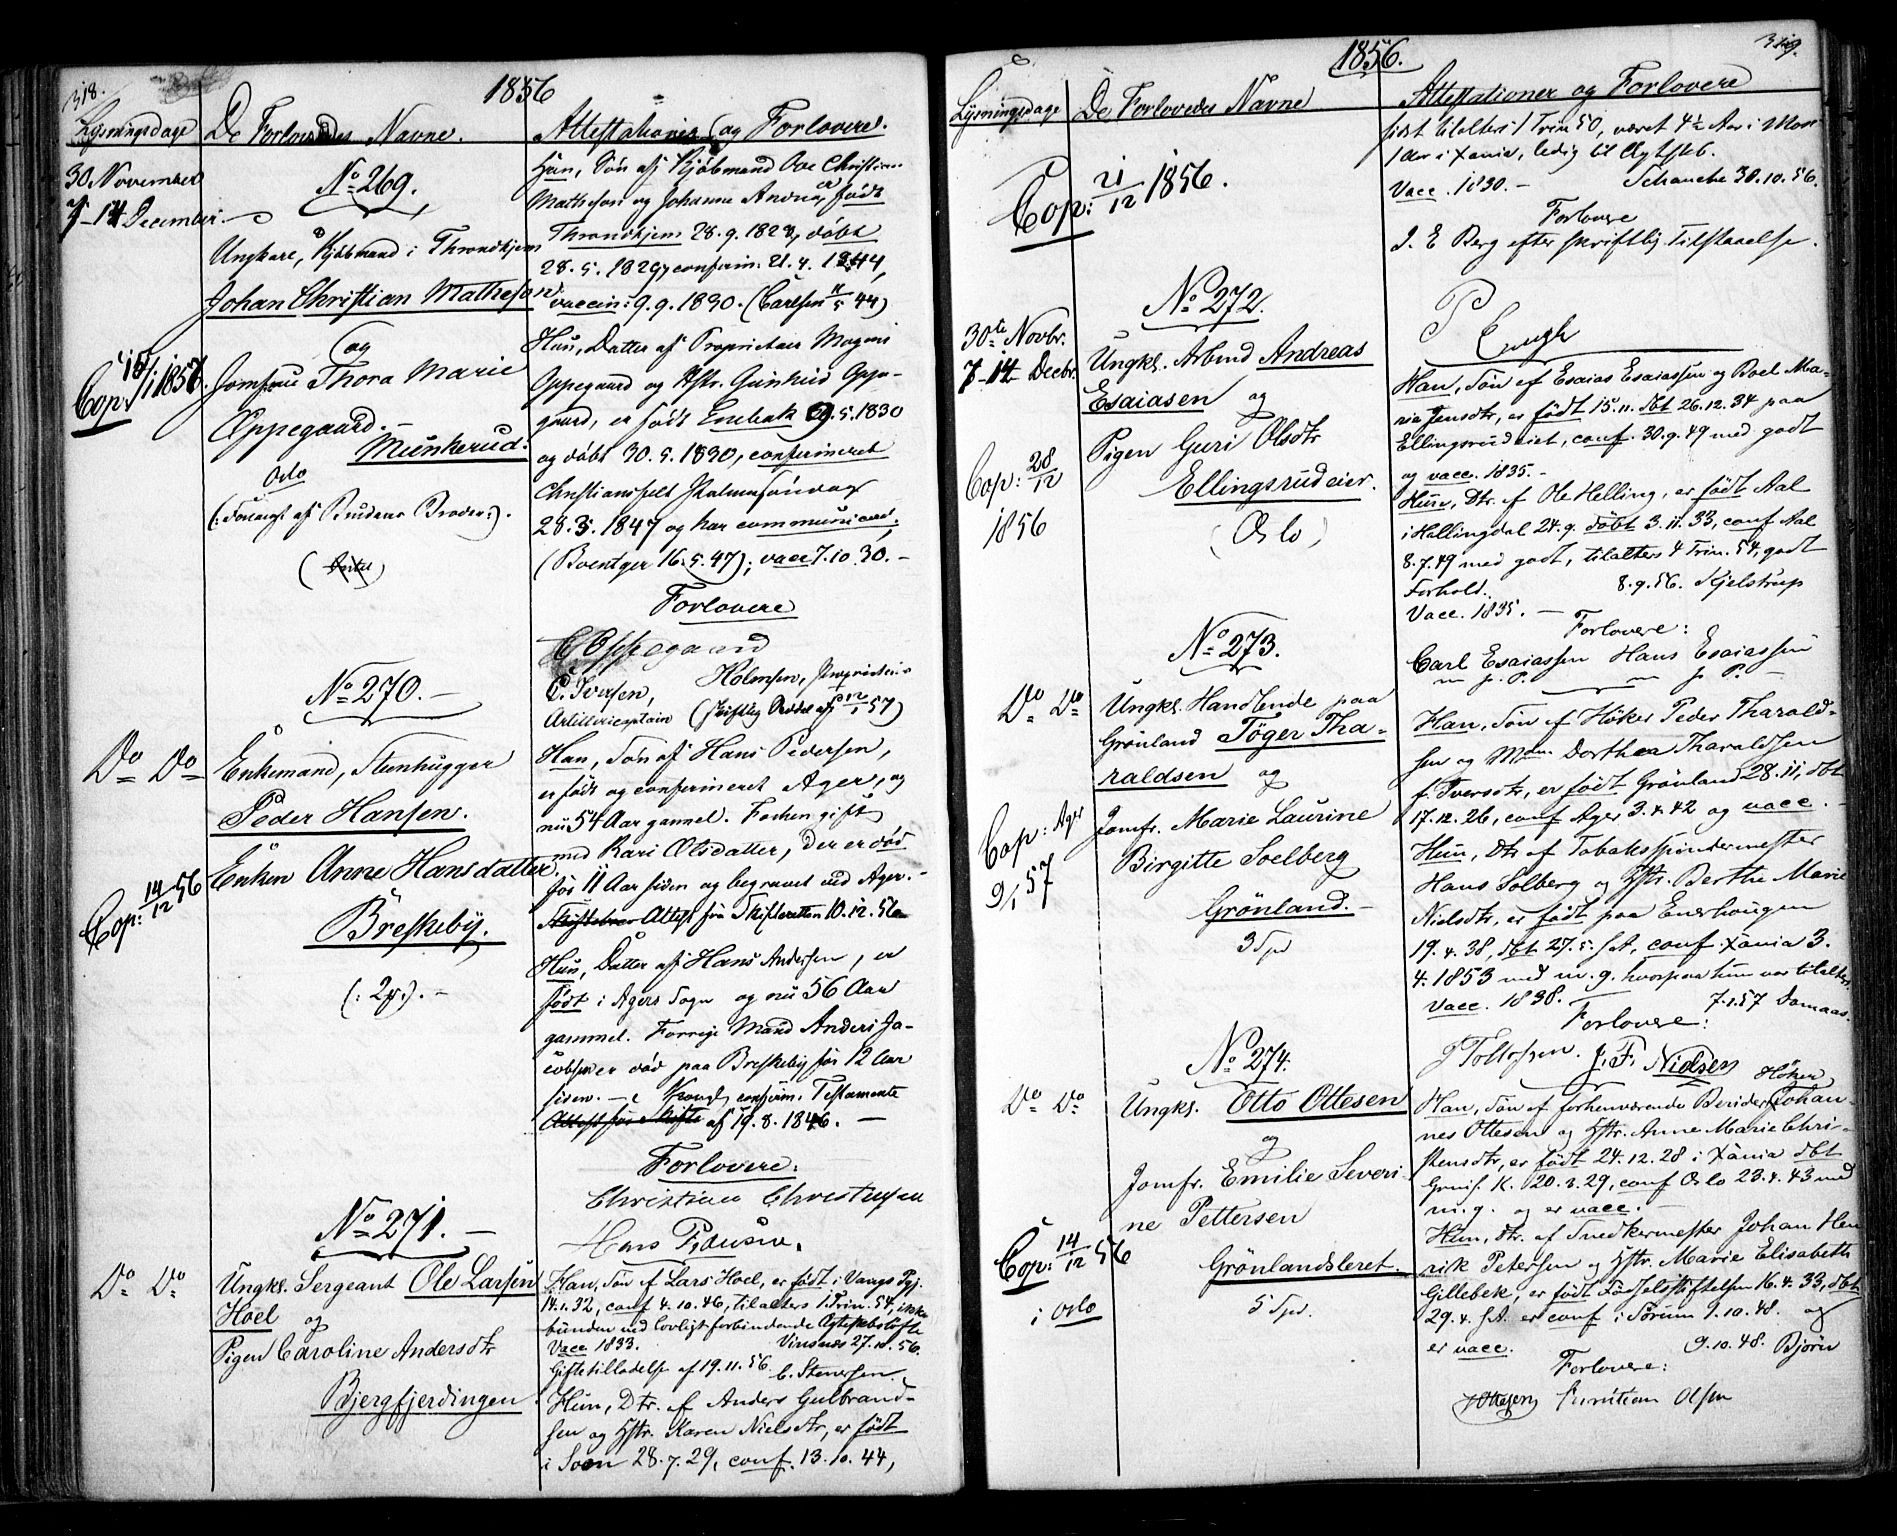 318.
1856
Lysningsdage
De Forlovedes Navne.
Attestationer og Forlovere.
30 November
7 – 14 December.
No 269.
Ungkarl, Kjøbmand i Throndhjem
Johan Christian Matheson
og
Cop: 15/1 1857.
Jomfrue Thora Marie
Oppegaard. –
Munkerud.
Oslo
(: Forevist af Brudens Broder :).
Han, Søn af Kjøbmand Ove Christian
Matheson og Johanne er født
Throndhjem 28. 9. 1828, døbt
28. 5. 1829, confirm: 21. 4. 1844,
vaccin: 9. 9. 1830. (Carlsen 44)
Hun, Datter af Proprietair Mogens
Oppegaard og Hstr. Gunhild Oppe-
gaard, er født Enebak 9. 5. 1830
og døbt 30. 5. 1830, confirmeret
Christiansfelt Palmesøndag
28. 3. 1847 og har communiceret;
(Boentger 16. 5. 47); vacc 7. 10. 30. –
Forlovere
C Oppegaard
C. Iversen, Holmsen, Proprietair
Artillericaptain (skriftlig 57)
No 270. –
Do Do
Enkemand, Steenhugger
Peder Hansen.
Enken Anne Hansdatter
Cop: 14/12 56
Breskeby.
(: 2 :). –
Han, Søn af Hans Pedersen,
er født og confirmeret Ager, og
nu 54 Aar gammel. Forhen gift
med Kari Olsdatter, der er død
for 11 Aar siden og begravet ved Ager. –
Attest fra Skifteretten 10. 12. 56
Hun, Datter af Hans Andersen, er
født i Agers Sogn og nu 56 Aar
gammel. Forrige Mand Anders Ja-
cobsen er død paa Breskeby for 12 Aar
siden. – confirm. Testamente
af 19. 8. 1846. –
Forlovere:
Christian Christensen
Hans Pedersen.
No 271. –
Do Do
Ungkl. Sergeant Ole Larsen
Hoel og
Pigen Caroline Andersdtr
Bjergfjerdingen.
Han, Søn af Lars Hoel, er født i Vangs Pgj.
14. 1. 32, conf 4. 10. 46, tilalters 1 Trin. 54, ikke
bunden ved lovligt forbindende Ægteskabsløfte
Vacc 1833. Vinsnes 27. 10. 56.
Giftetilladelse af 19. 11. 56. C. Stenersen.
Hun, Dtr. af Anders Gulbrand-
sen og Hstr. Karen Nielsdtr, er født
i Soon 28. 7. 29, conf. 13. 10. 44,
1856.
319.
Lysningsdage
De Forlovedes Navne
Attestationer og Forlovere
Cop: 21/12 1856.
sidst tilalters 1 Trin 50, været 4½ Aar i Moss
1 Aar i Xania, ledig til Ægtskb.
Vacc. 1830. – Schanche 30. 10. 56.
Forlovere
J. E Berg efter skriftlig Tilstaaelse.
P Engh
No 272.
30te Novbr.
7 – 14 Decbr.
Ungkl. Arbmd Andreas
Esaiasen og
Pigen Guri Olsdtr
Ellingsrudeier.
(Oslo)
Cop: 28/12
1856
Han, Søn af Esaias Esaiassen og Boel Ma-
ria Jensdtr, er født 15. 11. dbt 26. 12. 34 paa
Ellingsrudeiet, conf. 30. 9. 49 med godt
og vacc. 1835. –
Hun, Dtr. af Ole Helling, er født Aal
i Hallingdal 24. 9. døbt 3. 11. 33, conf Aal
8. 7. 49 med godt, tilalters 4 Trin. 54, godt
Forhold. 8. 9. 56. Kjelstrup
Vacc. 1835. –
Forlovere:
Carl Esaiassen Hans Esaiassen
m. p. P. m p. P. –
No 273.
Do Do
Ungkl. Handlende paa
Grønland Tøger Tha-
raldsen og
Jomfr. Marie Laurine
Birgitte Soelberg
Grønland. –
3 Spd
Cop: Ager
9/1 57
Han, Søn af Høker Peder Tharald-
sen og Mdm Dorthea Tharaldsen
f. Iversdtr, er født Grønland 28. 11, dbt
17. 12. 26, conf Ager 3. 4. 42 og vacc. –
Hun, Dtr af Tobaksspindermester
Hans Solberg og Hstr. Berthe Marie
Nielsdtr, er født paa Enerhougen
19. 4. 38, dbt 27. 5. s. A, conf. Xania 3.
4. 1853 med m. g. hvorpaa hun var tilalters.
Vacc. 1838. 7. 1. 57 Damaas.
Forlovere:
P Tollefsen. J. F. Nielsen
Høker
No 274.
Do Do
Ungkl. Otto Ottesen
og
Jomfr. Emilie Severi-
ne Pettersen
Grønlandsleret.
5 Spd.
Cop: 14/12 56
i Oslo
Han, Søn af forhenværende Berider Johan-
nes Ottesen og Hstr. Anne Marie Chri-
stensdtr, er født 24. 12. 28 i Xania dbt
Garnis. K. 20. 3. 29, conf Oslo 23. 4. 43 med
m. g. og er vacc. –
Hun, dtr. af Snedkermester Johan Hen
rik Petersen og Hstr. Marie Elisabeth
Gillebek, er født Fødselsstiftelsen 16. 4. 33, dbt
29. 4. s. A. er conf i Sørum 1. 10. 48. og
er vacc. 9. 10. 48. Bjørn
Forlovere:
J Ottesen Christian Olsen